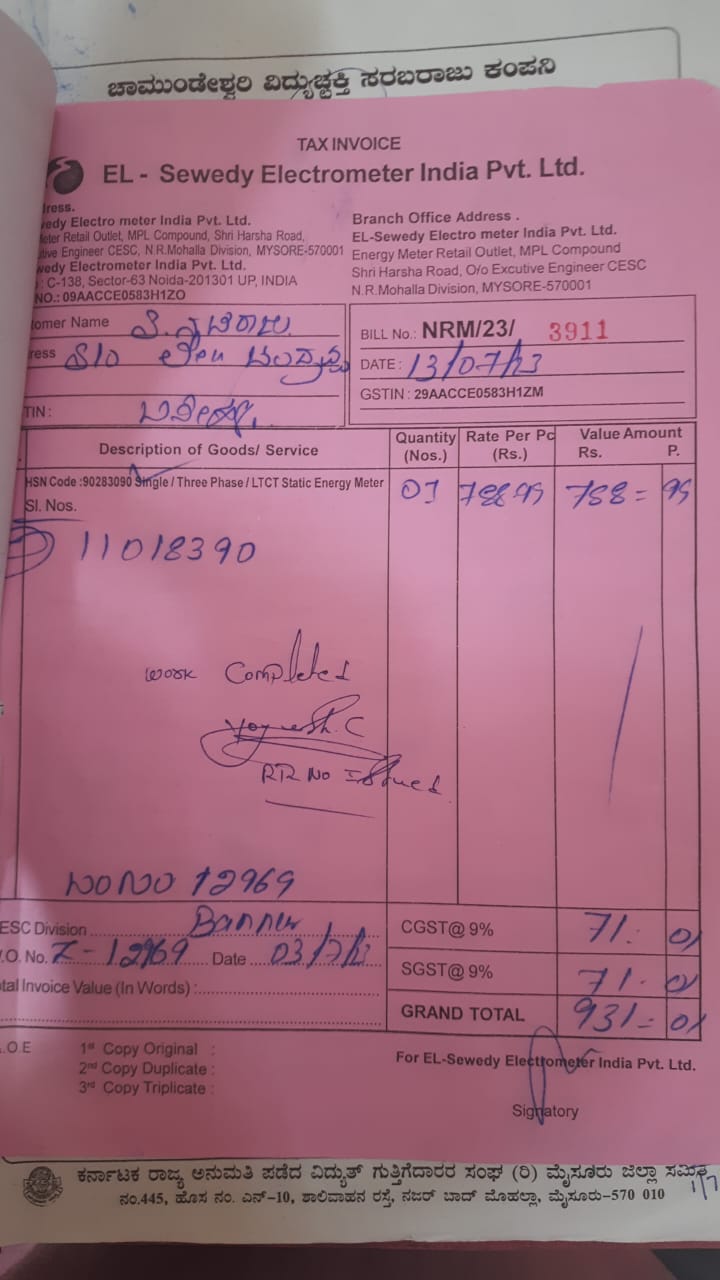 ಚಾಮುಂಡೇಶ್ವರಿ ವಿದ್ಯುಚ್ಛಕ್ತಿ ಸರಬರಾಜು ಕಂಪನಿ
TAX INVOICE
EL - Sewedy Electrometer India Pvt. Ltd.
dress.
wedy Electro meter India Pvt. Ltd.
eter Retail Outlet, MPL Compound, Shri Harsha Road,
utive Engineer CESC, N.R.Mohalla Division, MYSORE-570001
wedy Electrometer India Pvt. Ltd.
: C-138, Sector-63 Noida-201301 UP, INDIA
NO.: 09AACCE0583H1ZO
Branch Office Address .
EL-Sewedy Electro meter India Pvt. Ltd.
Energy Meter Retail Outlet, MPL Compound
Shri Harsha Road, O/o Excutive Engineer CESC
N.R.Mohalla Division, MYSORE-570001
tomer Name
ress S/o
TIN :
BILL No.: NRM/23/ 3911
DATE : 13/07/23
GSTIN : 29AACCE0583H1ZM
Description of Goods/ Service Quantity (Nos.) Rate Per Pc (Rs.) Value Amount Rs. P.
HSN Code :90283090 Single / Three Phase / LTCT Static Energy Meter 01 788.95 788 = 95
Sl. Nos.
1) 11018390
work Completed
Yogesh.C
RR No Issued
12969
ESC Division Bannur
.O. No. Z - 12969 Date 03/7/23
tal Invoice Value (In Words) :
CGST@ 9% 71. 01
SGST@ 9% 71. 01
GRAND TOTAL 931 = 01
.O.E
1st Copy Original :
2nd Copy Duplicate :
3rd Copy Triplicate :
For EL-Sewedy Electrometer India Pvt. Ltd.
Signatory
ಕರ್ನಾಟಕ ರಾಜ್ಯ ಅನುಮತಿ ಪಡೆದ ವಿದ್ಯುತ್ ಗುತ್ತಿಗೆದಾರರ ಸಂಘ (ರಿ) ಮೈಸೂರು ಜಿಲ್ಲಾ ಸಮಿತಿ
ನಂ.445, ಹೊಸ ನಂ. ಎನ್-10, ಶಾಲಿವಾಹನ ರಸ್ತೆ, ನಜರ್ ಬಾದ್ ಮೊಹಲ್ಲಾ, ಮೈಸೂರು-570 010